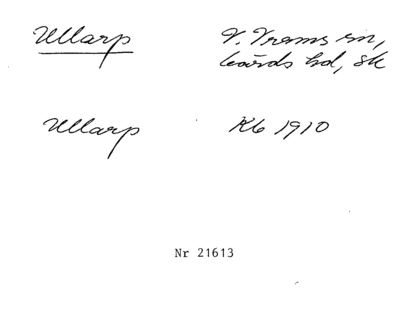 Ullarp V. Vrams sn,
Gärds hd, Sk
Ullarp Kb 1910
Nr 21613